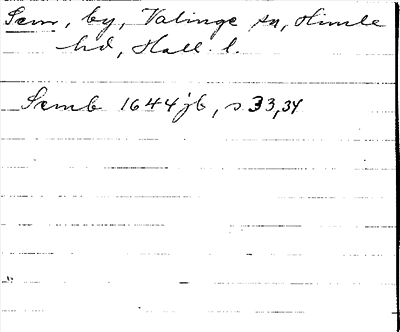 Sem, by, Valinge sn, Himle
hd, Hall. l.
Semb 1644 jb, s. 33, 34